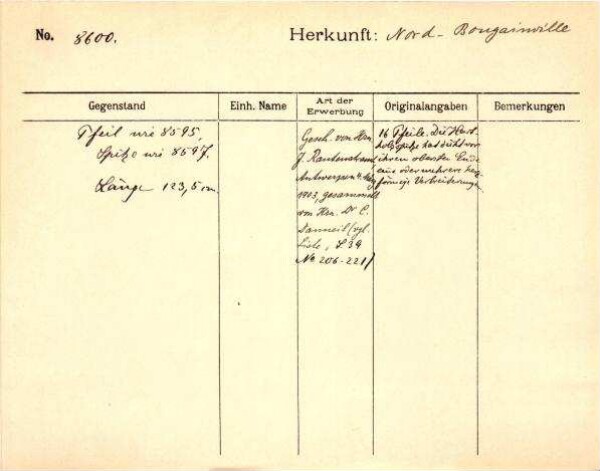 No. 8600. Herkunft: Nord-Bougainville
Gegenstand Einh. Name Art der Erwerbung Originalangaben Bemerkungen
Pfeil wie 8595,
Spitze wie 8597.
Länge 123,5 cm.
Gesch. von Hrn
J. Rautenstrauch,
Antwerpen
1903, gesammelt
von Hrn. Dr C.
Danneil (vgl.
Liste, S. 39
No 206-221)
16 Pfeile. Die Hart-
holzspitze hat dicht vor
ihrem obersten Ende
eine oder mehrere
förmige Verbreiterungen